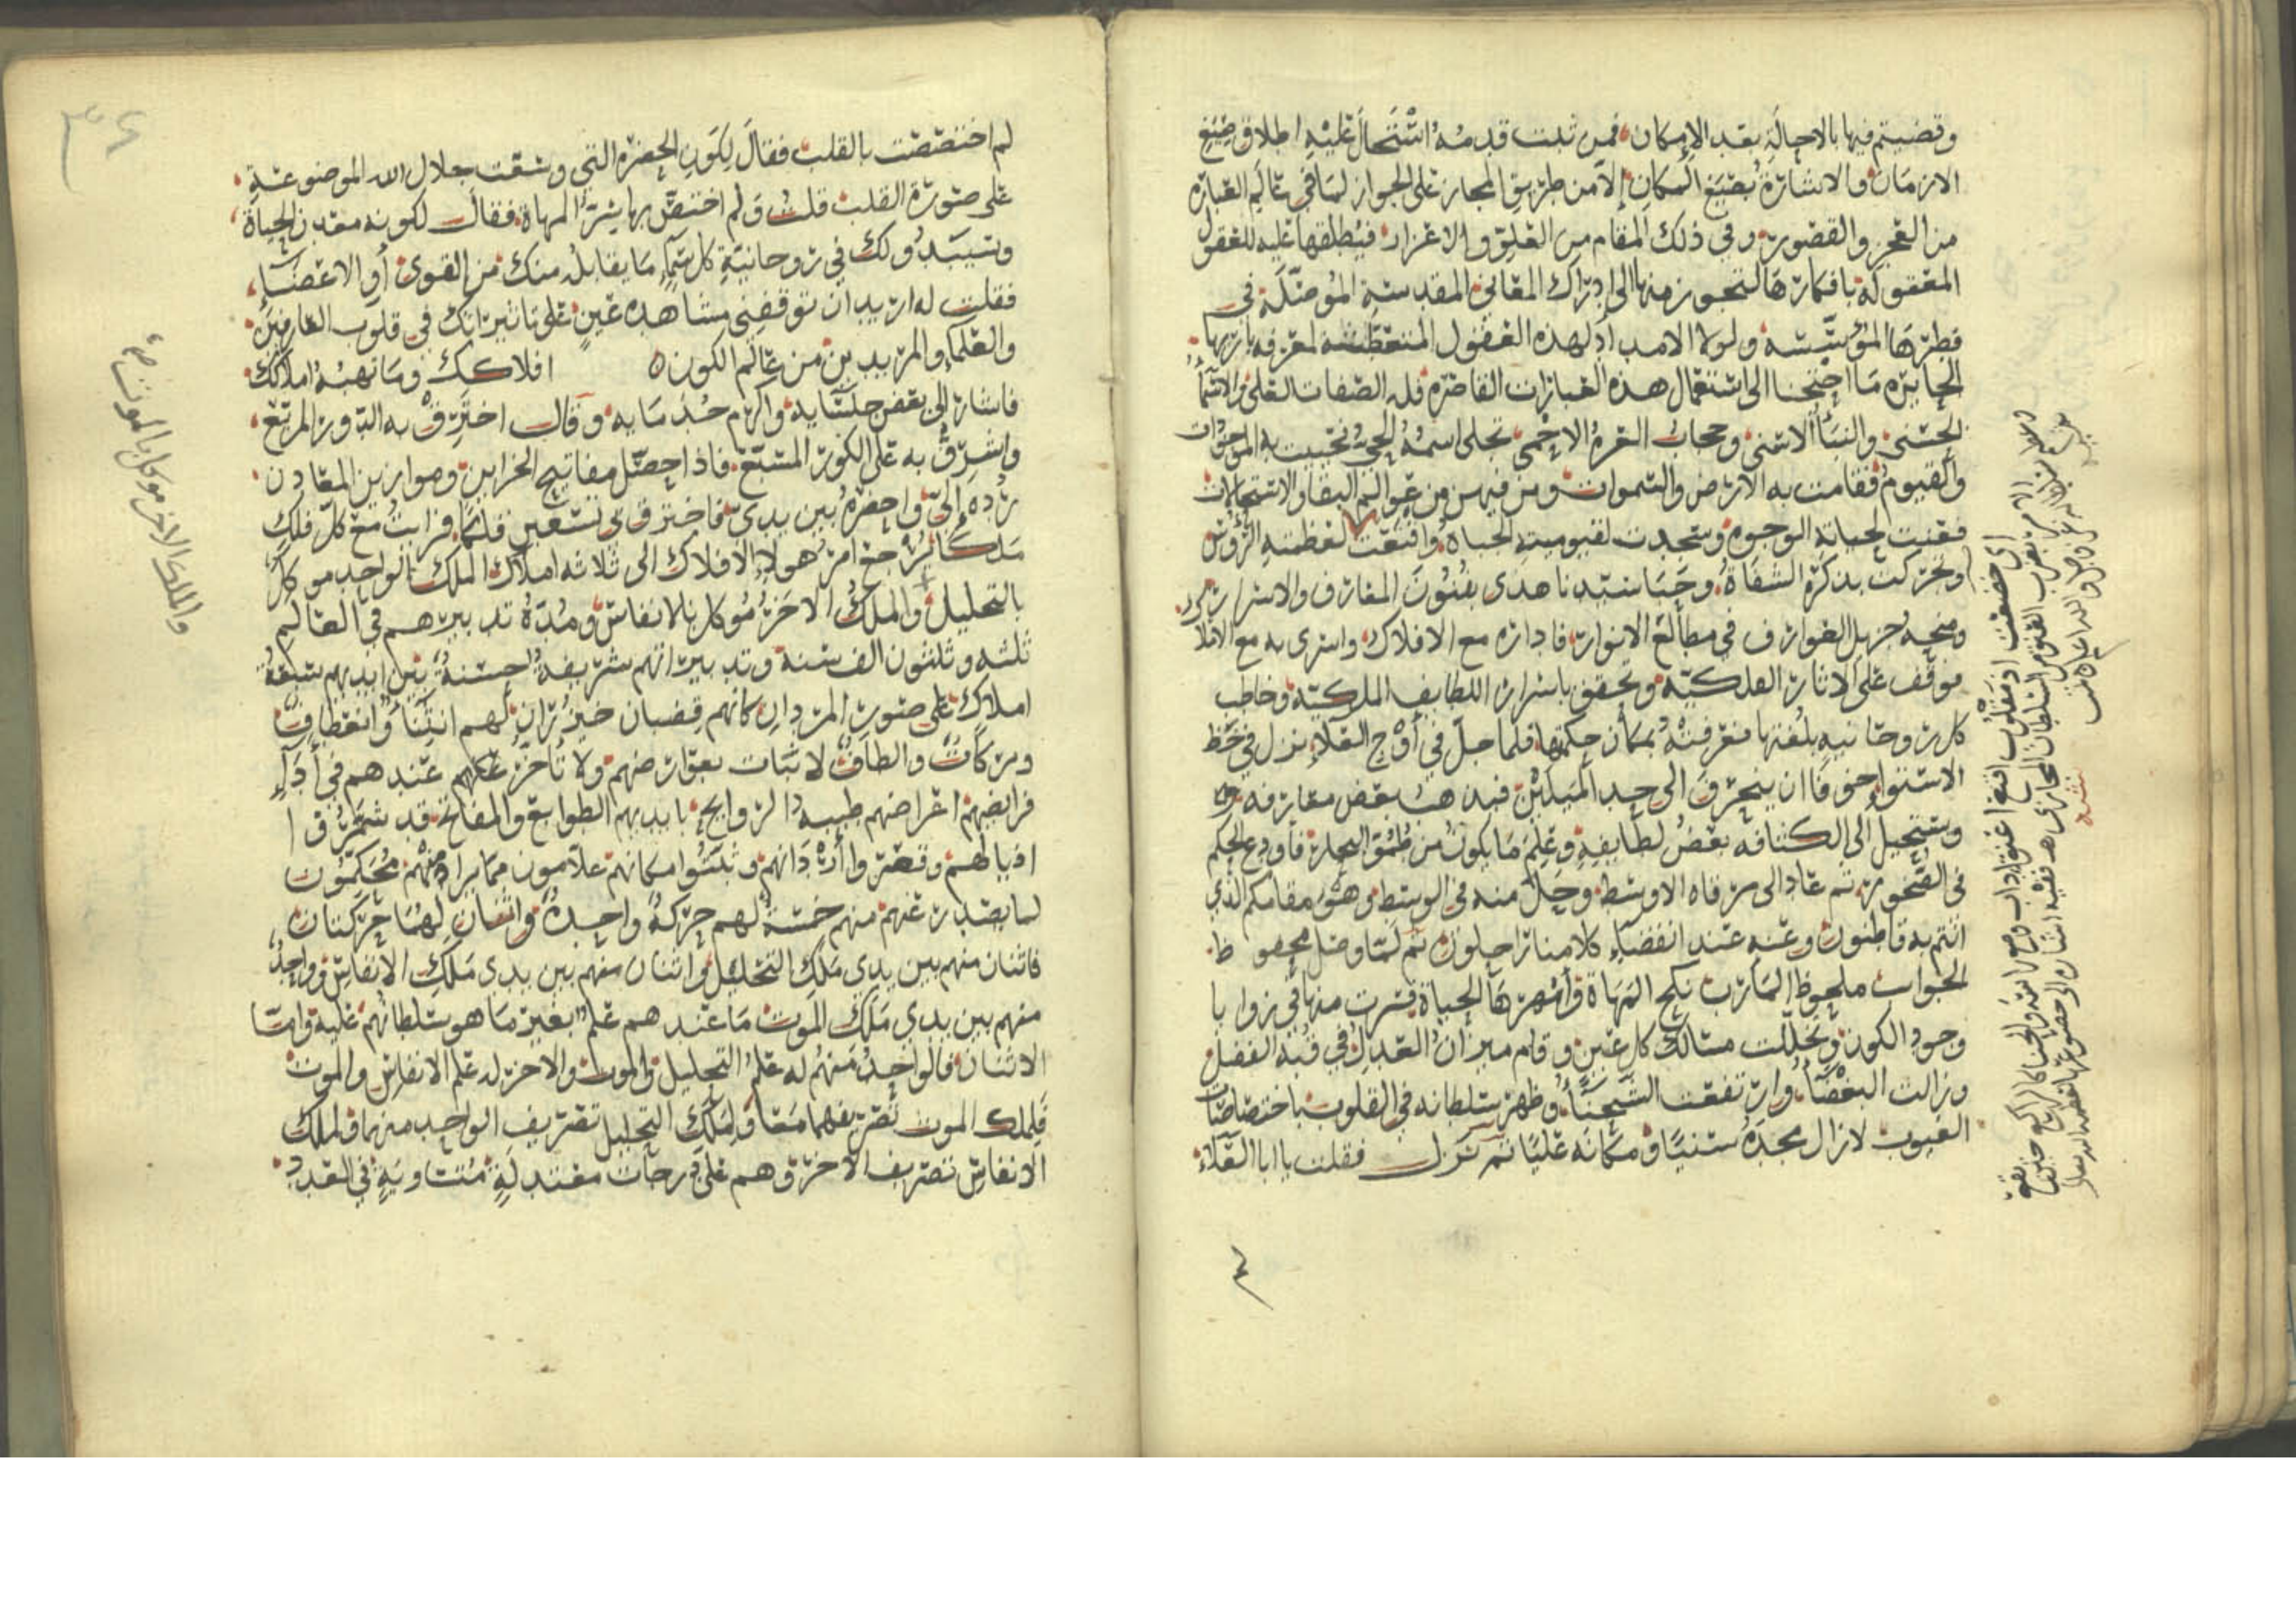 وقضيتم فيها بالاحالة بعد الامكان فمن ثبت قدمه استحال عليه اطلاق صيغ
الازمان والاشارة بصيغ المكان إلا من طريق المجاز على الجواز لما في عالم العبارة
من العجز والقصور وفي ذلك المقام من العلو والاعزاز فيطلقها عليه للعقول
المعقولة بافكارها لتجوز منها الى ادراك المعاني المقدسة الموصلة في
فطرها المؤسسة ولولا الامداد لهذه العقول المتعطشة لمعرفة بارئها
الحايرة ما احتجنا الى استعمال هذه العبارات القاصرة فله الصفات العلى والاسماء
الحسنى والثناء الاسنى وحجاب العزة الاحمى تجلى اسمه الحي فحييت به الموجودات
والقيوم فقامت به الارض والسموات ومن فيهن من عوالم البقا والاستحالات
فعنت لحياته الوجوه وسجدت لقيوميته الجباه واقنعت لعظمته الرؤس
وتحركت بذكره الشفاه وحبا سيدنا هدى بفنون المعارف والاسرار
ومنحه جزيل العوارف في مطالع الانوار فاداره مع الافلاك واسرى به مع الاملاك
فوقف على الاثار الفلكية وتحقق باسرار اللطايف الملكية وخاطب
كل روحانية بلغتها فعرفته بمكان حكمتها فلما حل في أوج العلاء نزل في خط
الاستوا خوفا ان ينحرف الى احد الميلين فيذهب بعض معارفه
ويستحيل الى الكثافة بعض لطايفه وعلم ما يكون من ظلمة البحار فاودع الحكم
في الصخور ثم عاد الى مرقاه الاوسط وحل منه في الوسط وهو مقامكم الذي
انتم به قاطنون وعنه عند انقضاء كلامنا راحلون ثم لما وصل محفوظ
الجواب ملحوظ المآرب نكح المهاة وأمهرها الحياة فسرت منها في زوايا
وجود الكون وتخللت مسالك كل عين وقام ميزان العدل في قبة الفضل
وزالت البغضاء وارتفعت الشحناء وظهر سلطانه في القلوب باختصاصات
الغيوب لازال مجده سنيا ومكانه عليا ثم نزل فقلت يا ابا العلاء
لم اختصصت بالقلب فقال لكون الحضرة التي وسعت جلال الله الموضوعة
على صورة القلب قلت ولم اختص بها سر المهاة فقال لكونه معدن الحياة
وسيبدو لك في روحانية كل سماء ما يقابله منك من القوى أو الاعضاء
فقلت له اريد ان توقفني مشاهدة عين على تاثيراتك في قلوب العارفين
والعلماء والمريدين من عالم الكون افلاكك وما تهبه املاكك
فاشار إلى بعض جلسائه وأكرم خدمايه وقال اخترق به الدور المربع
واشرق به على الكور المسبع فاذا حصل مفاتيح الخزاين وموازين المعادن
رده إلي واحضره بين يدي فاخترق بي تسعين فلكا فرايت مع كل فلك
ملكا يرجع امر هولاء الافلاك الى ثلاثة املاك الملك الواحد موكل
بالتحليل والملك الاخر موكل بالانفاس ومدة تدبيرهم في العالم
ثلثه وثلثون الف سنة وتدبيراتهم شريفة حسنة بين ايديهم سبعة
املاك على صور المردان كانهم قضبان خيزران لهم انثناء وانعطاف
وبركات والطاف لا ثبات بعوارضهم ولا تأخر عندهم في أداء
فرايضهم اعراضهم طيبة الروايح بايديهم الطوابع والمفاتح قد شمروا
اذيالهم وقصروا أردانهم وثبتوا مكانهم علامون مما يراد منهم محكمون
لما يصدر عنهم منهم خمسة لهم حركة واحدة واثنان لهما حركتان
فاثنان منهم بين يدي ملك التحليل واثنان منهم بين يدي ملك الانفاس وواحد
منهم بين يدي ملك الموت ما عندهم علم بغير ما هو سلطانهم عليه وامّا
الاثنان فالواحد منهم له علم التحليل والموت والاخر له علم الانفاس والموت
فلملك الموت تصريفهما معا ولملك التحليل تصريف الواحد منهما ولملك
الانفاس تصريف الاخر وهم على درجات معتدلة متساوية في العدد
والملك الاخر موكل بالموت